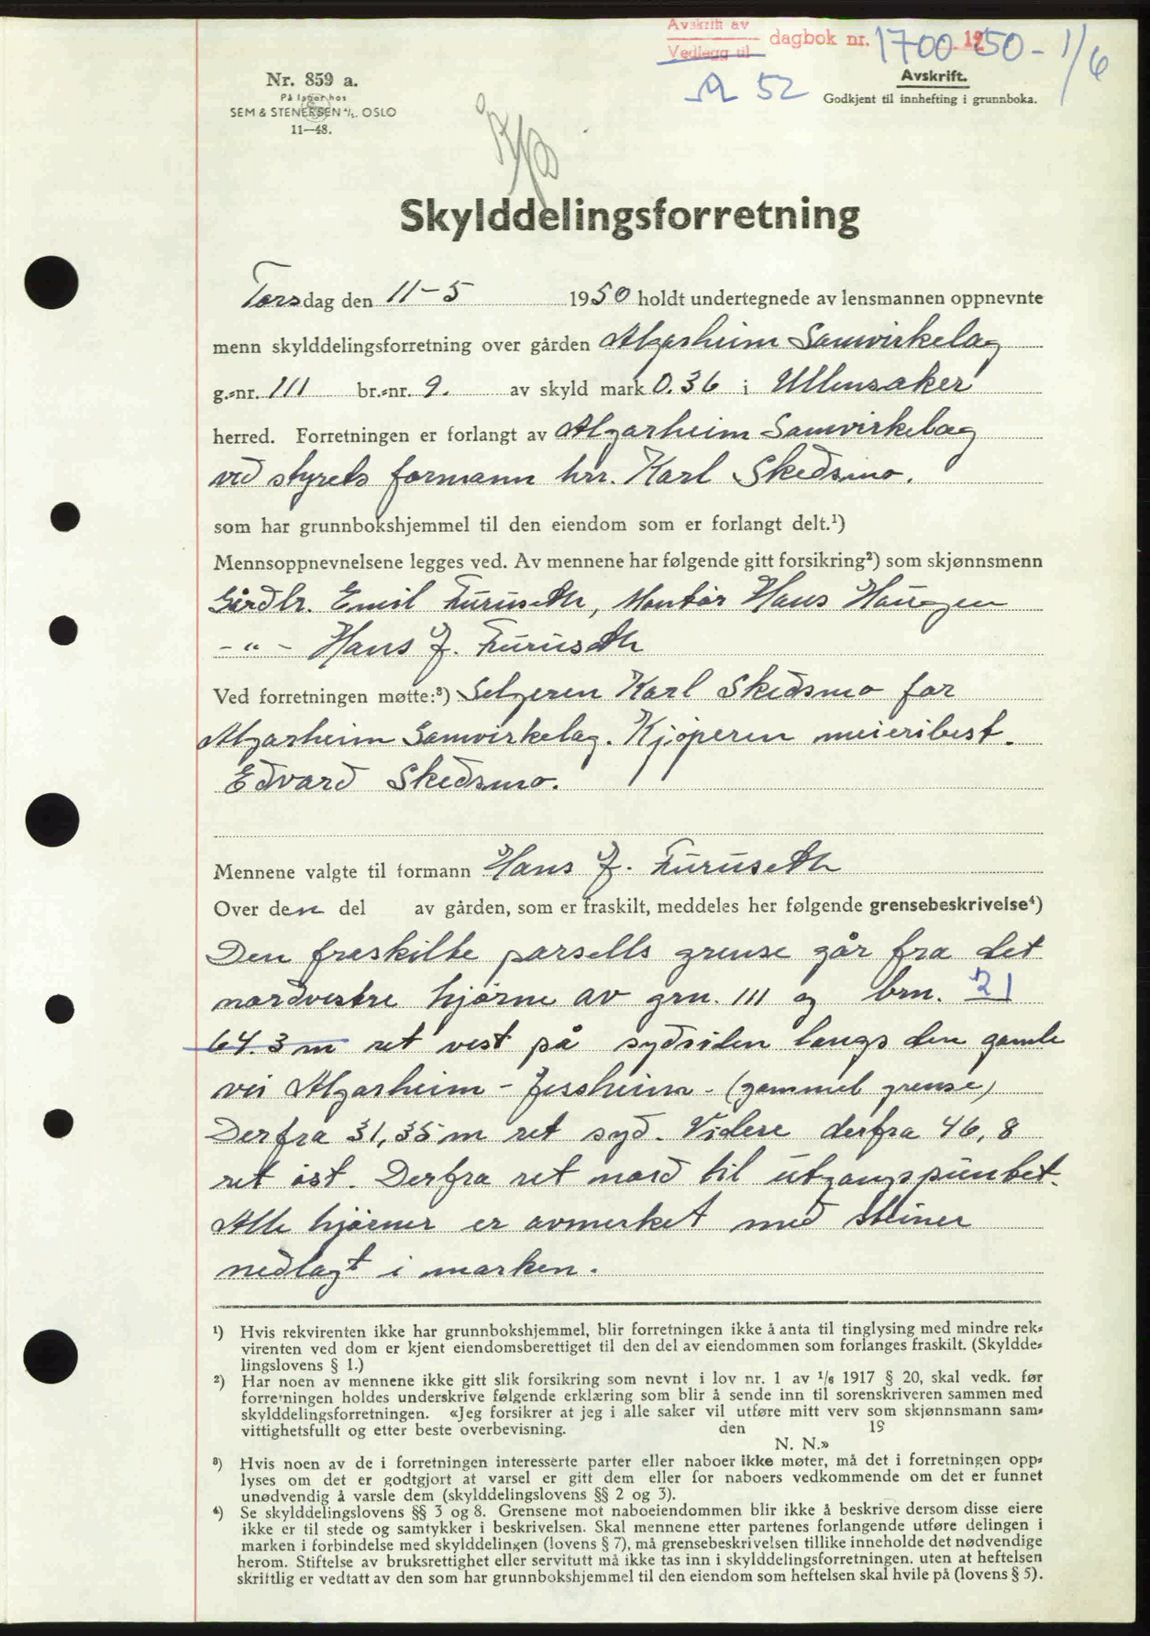 Avskrift av
Vedlegg til
dagbok nr. 1700 1950 - 1/6
Nr. 859 a.
På lager hos
SEM & STENERSEN A/S. OSLO
11—48.
52
Avskrift.
Godkjent til innhefting i grunnboka.
Skylddelingsforretning
Torsdag den 11-5 1950 holdt undertegnede av lensmannen oppnevnte
menn skylddelingsforretning over gården Algarheim Samvirkelag
g.-nr. 111 br.-nr. 9. av skyld mark 0.36 i Ullensaker
herred. Forretningen er forlangt av Algarheim Samvirkelag
ved styrets formann hrr. Karl Skedsmo.
som har grunnbokshjemmel til den eiendom som er forlangt delt.¹)
Mennsoppnevnelsene legges ved. Av mennene har følgende gitt forsikring²) som skjønnsmenn
Gårdbr. Emil Furuseth, Montør Hans Haugen
- " - Hans J. Furuseth
Ved forretningen møtte:³) Selgeren Karl Skedsmo for
Algarheim Samvirkelag. Kjøperen meieribest.
Edvard Skedsmo.
Mennene valgte til formann Hans J. Furuseth
Over den del av gården, som er fraskilt, meddeles her følgende grensebeskrivelse⁴)
Den fraskilte parsells grense går fra det
nordvestre hjørne av grn. 111 og brn. 21
64.3 m ret vest på sydsiden langs den gamle
vei Algarheim - Jessheim - (gammel grense)
Derfra 31,35 m ret syd. Videre derfra 46,8
ret øst. Derfra ret nord til utgangspunktet.
Alle hjørner er avmerket med steiner
nedlagt i marken.
¹) Hvis rekvirenten ikke har grunnbokshjemmel, blir forretningen ikke å anta til tinglysing med mindre rek-
virenten ved dom er kjent eiendomsberettiget til den del av eiendommen som forlanges fraskilt. (Skyldde-
lingslovens § 1.)
²) Har noen av mennene ikke gitt slik forsikring som nevnt i lov nr. 1 av 1/6 1917 § 20, skal vedk. før
forretningen holdes underskrive følgende erklæring som blir å sende inn til sorenskriveren sammen med
skylddelingsforretningen. «Jeg forsikrer at jeg i alle saker vil utføre mitt verv som skjønnsmann sam-
vittighetsfullt og etter beste overbevisning. den 19
N. N.»
³) Hvis noen av de i forretningen interesserte parter eller naboer ikke møter, må det i forretningen opp-
lyses om det er godtgjort at varsel er gitt dem eller for naboers vedkommende om det er funnet
unødvendig å varsle dem (skylddelingslovens §§ 2 og 3).
⁴) Se skylddelingslovens §§ 3 og 8. Grensene mot naboeiendommen blir ikke å beskrive dersom disse eiere
ikke er til stede og samtykker i beskrivelsen. Skal mennene etter partenes forlangende utføre delingen i
marken i forbindelse med skylddelingen (lovens § 7), må grensebeskrivelsen tillike inneholde det nødvendige
herom. Stiftelse av bruksrettighet eller servitutt må ikke tas inn i skylddelingsforretningen. uten at heftelsen
skriftlig er vedtatt av den som har grunnbokshjemmel til den eiendom som heftelsen skal hvile på (lovens § 5).